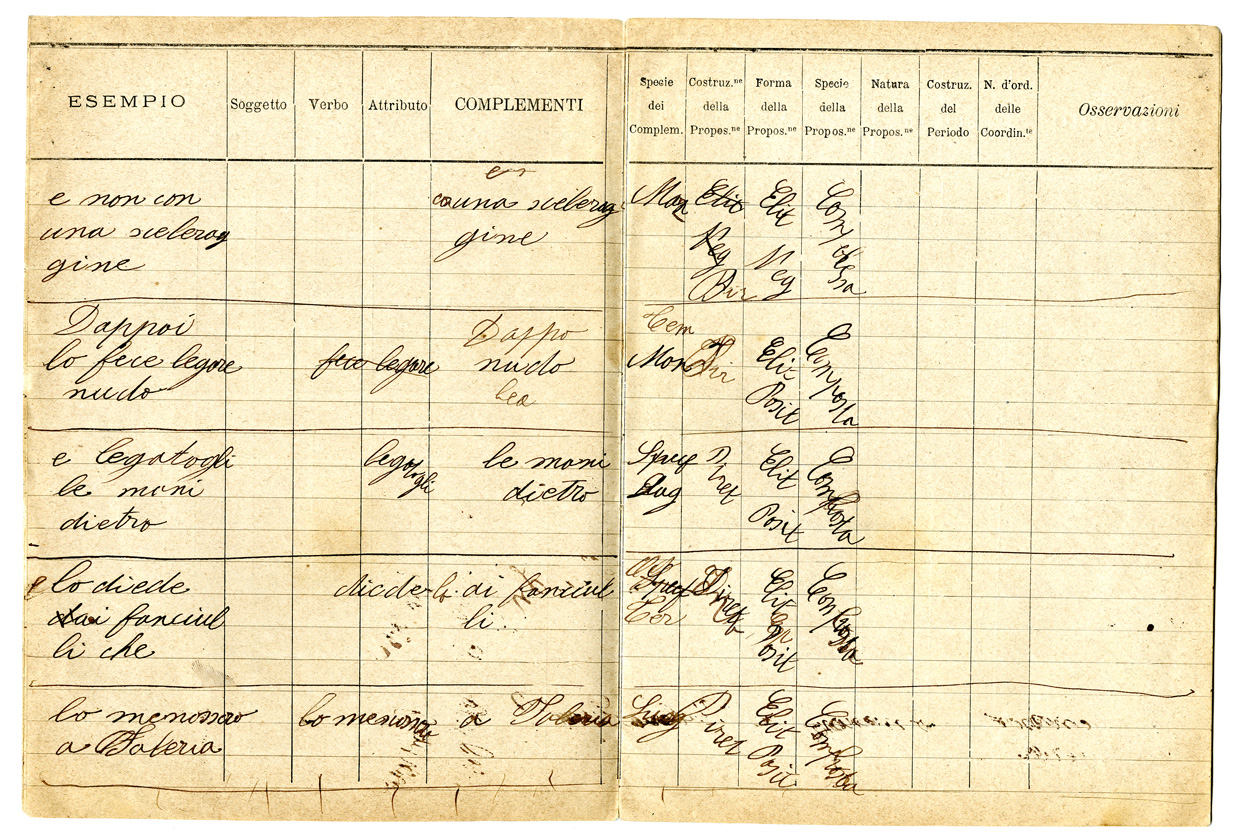 ESEMPIO
Soggetto
Verbo
Attributo
COMPLEMENTI
Specie
dei
Complem.
Costruz.ne
della
Propos.ne
Forma
della
Propos.ne
Specie
della
Propos.ne
Natura
della
Propos.ne
Costruz.
del
Periodo
N. d'ord.
delle
Coordin.te
Osservazioni
e non con
una scelerag
gine
una scelerag
gine
Elit
Neg
Dir
Elit
Neg
Compo
Dappoi
lo fece legare
nudo
fece legare
Dappo
nudo
Tem
Dir
Elit
Posit
Composta
e legatogli
le mani
dietro
legatogli
le mani
dietro
Diret
Elit
Posit
Composta
lo diede
ai fanciul
li che
diede
ai fanciul
li
Ter
Diret
Elit
Posit
Composta
lo menossero
a Faleria
lo menossero
a Faleria
Diret
Elit
Posit
Composta